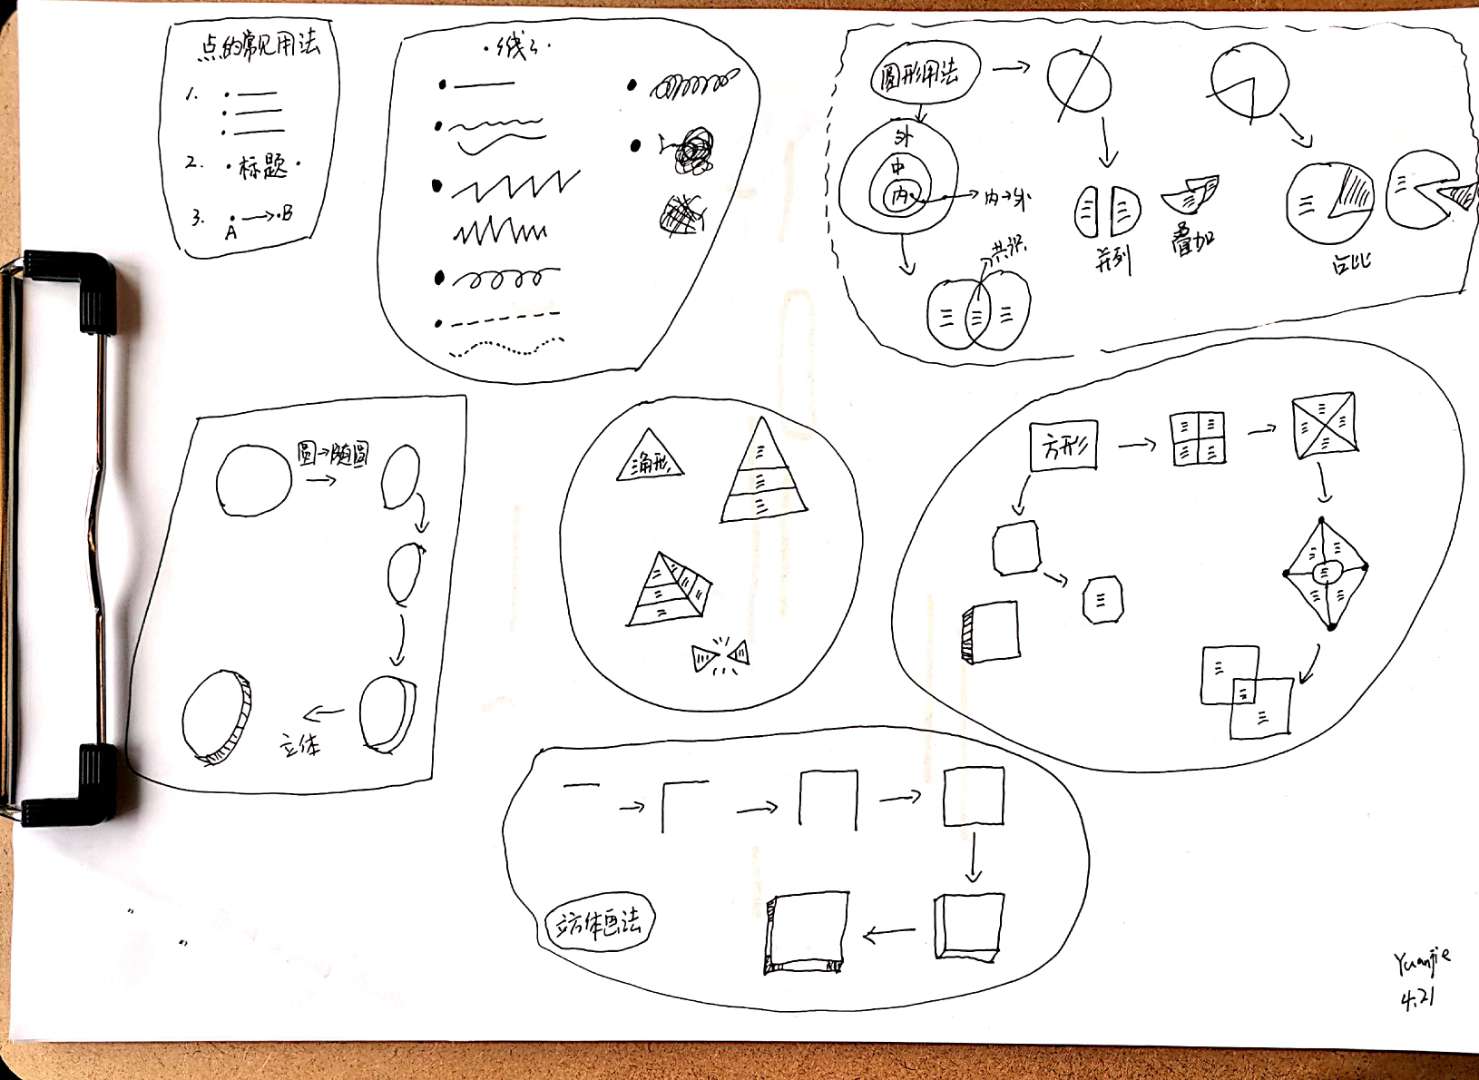 点的常见用法
1.
2. ·标题·
3.
A
B
·线·
圆形用法
外
中
内
内→外
共识
并列
叠加
占比
圆→随圆
立体
三角形
方形
立方体画法
Yuanjie
4.21